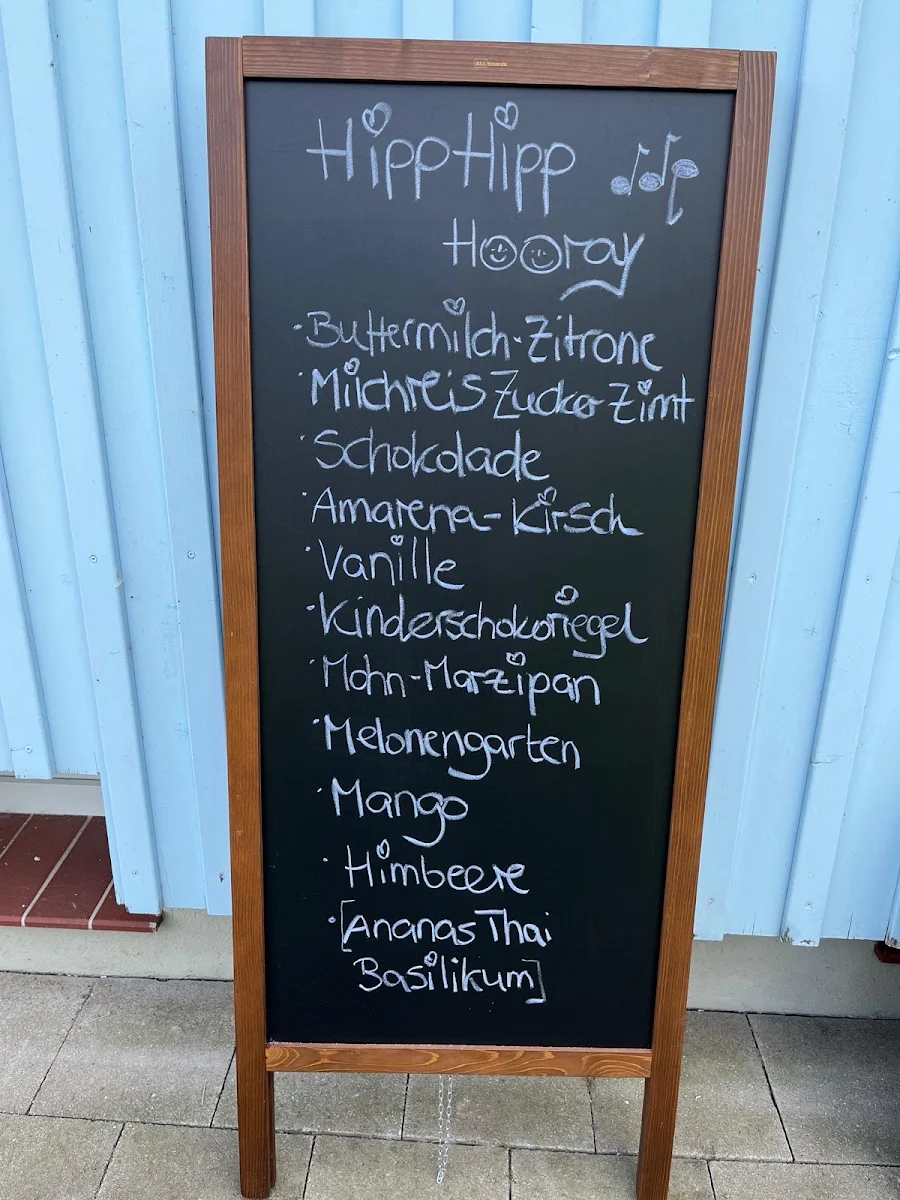 HippHipp
Hooray
·Buttermilch-Zitrone
·Milchreis Zucker Zimt
·Schokolade
·Amarena-Kirsch
·Vanille
·Kinderschokoriegel
·Mohn-Marzipan
·Melonengarten
·Mango
·Himbeere
·[Ananas Thai
Basilikum]